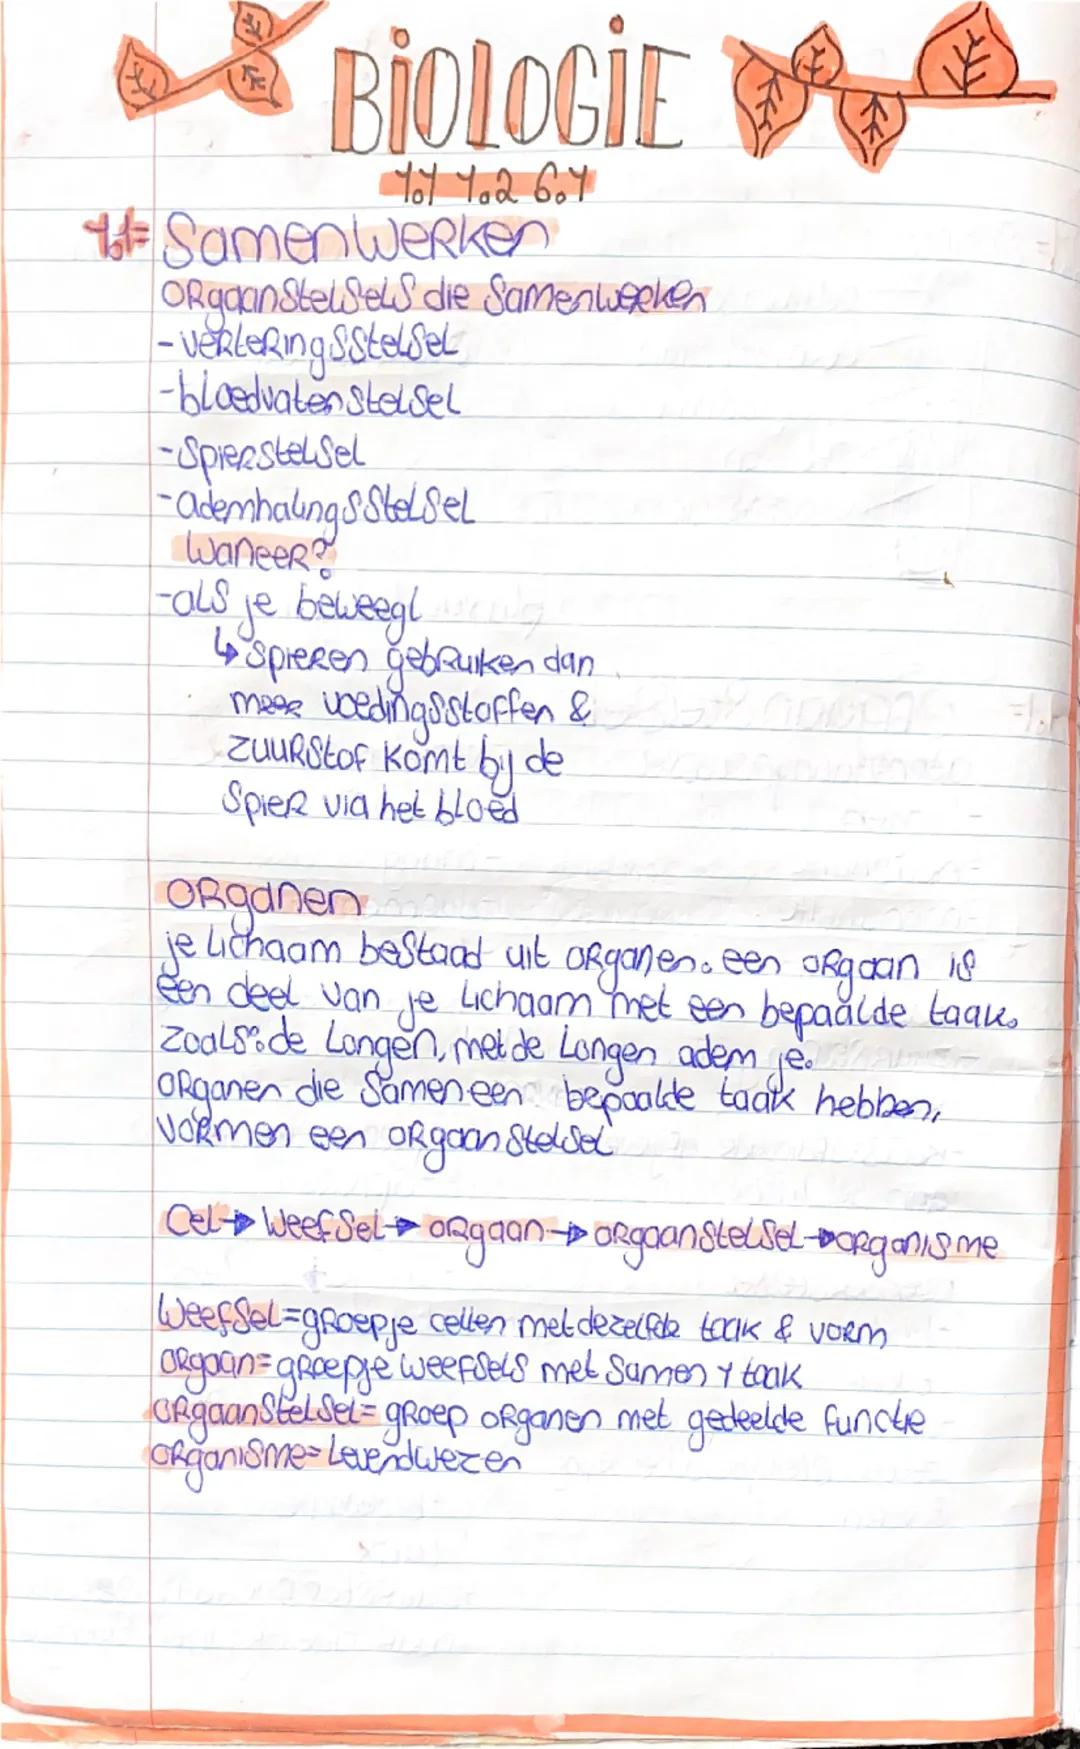 BIOLOGIE
1.1 1.2 6.1
1.1= Samenwerken
Organstelsels die samenwerken
- verteringsstelsel
-bloedvatenstelsel
-Spierstelsel
-ademhalingsstelsel
Waneer?
-als je beweegt
↳ spieren gebruiken dan
meer voedingsstoffen &
zuurstof komt bij de
Spier via het bloed
Organen
je lichaam bestaad uit organen. een orgaan is
een deel van je lichaam met een bepaalde taak.
Zoals: de Longen, met de Longen adem je.
Organen die Samen een bepaalde taak hebben,
vormen een orgaanstelsel
Cel→ Weefsel→ orgaan→ orgaanstelsel→organisme
Weefsel=groepje cellen met dezelfde taak & vorm
Orgaan= groepje weefsels met Samen 1 taak
Orgaanstelsel= groep organen met gedeelde functie
Organisme= Levendwezen